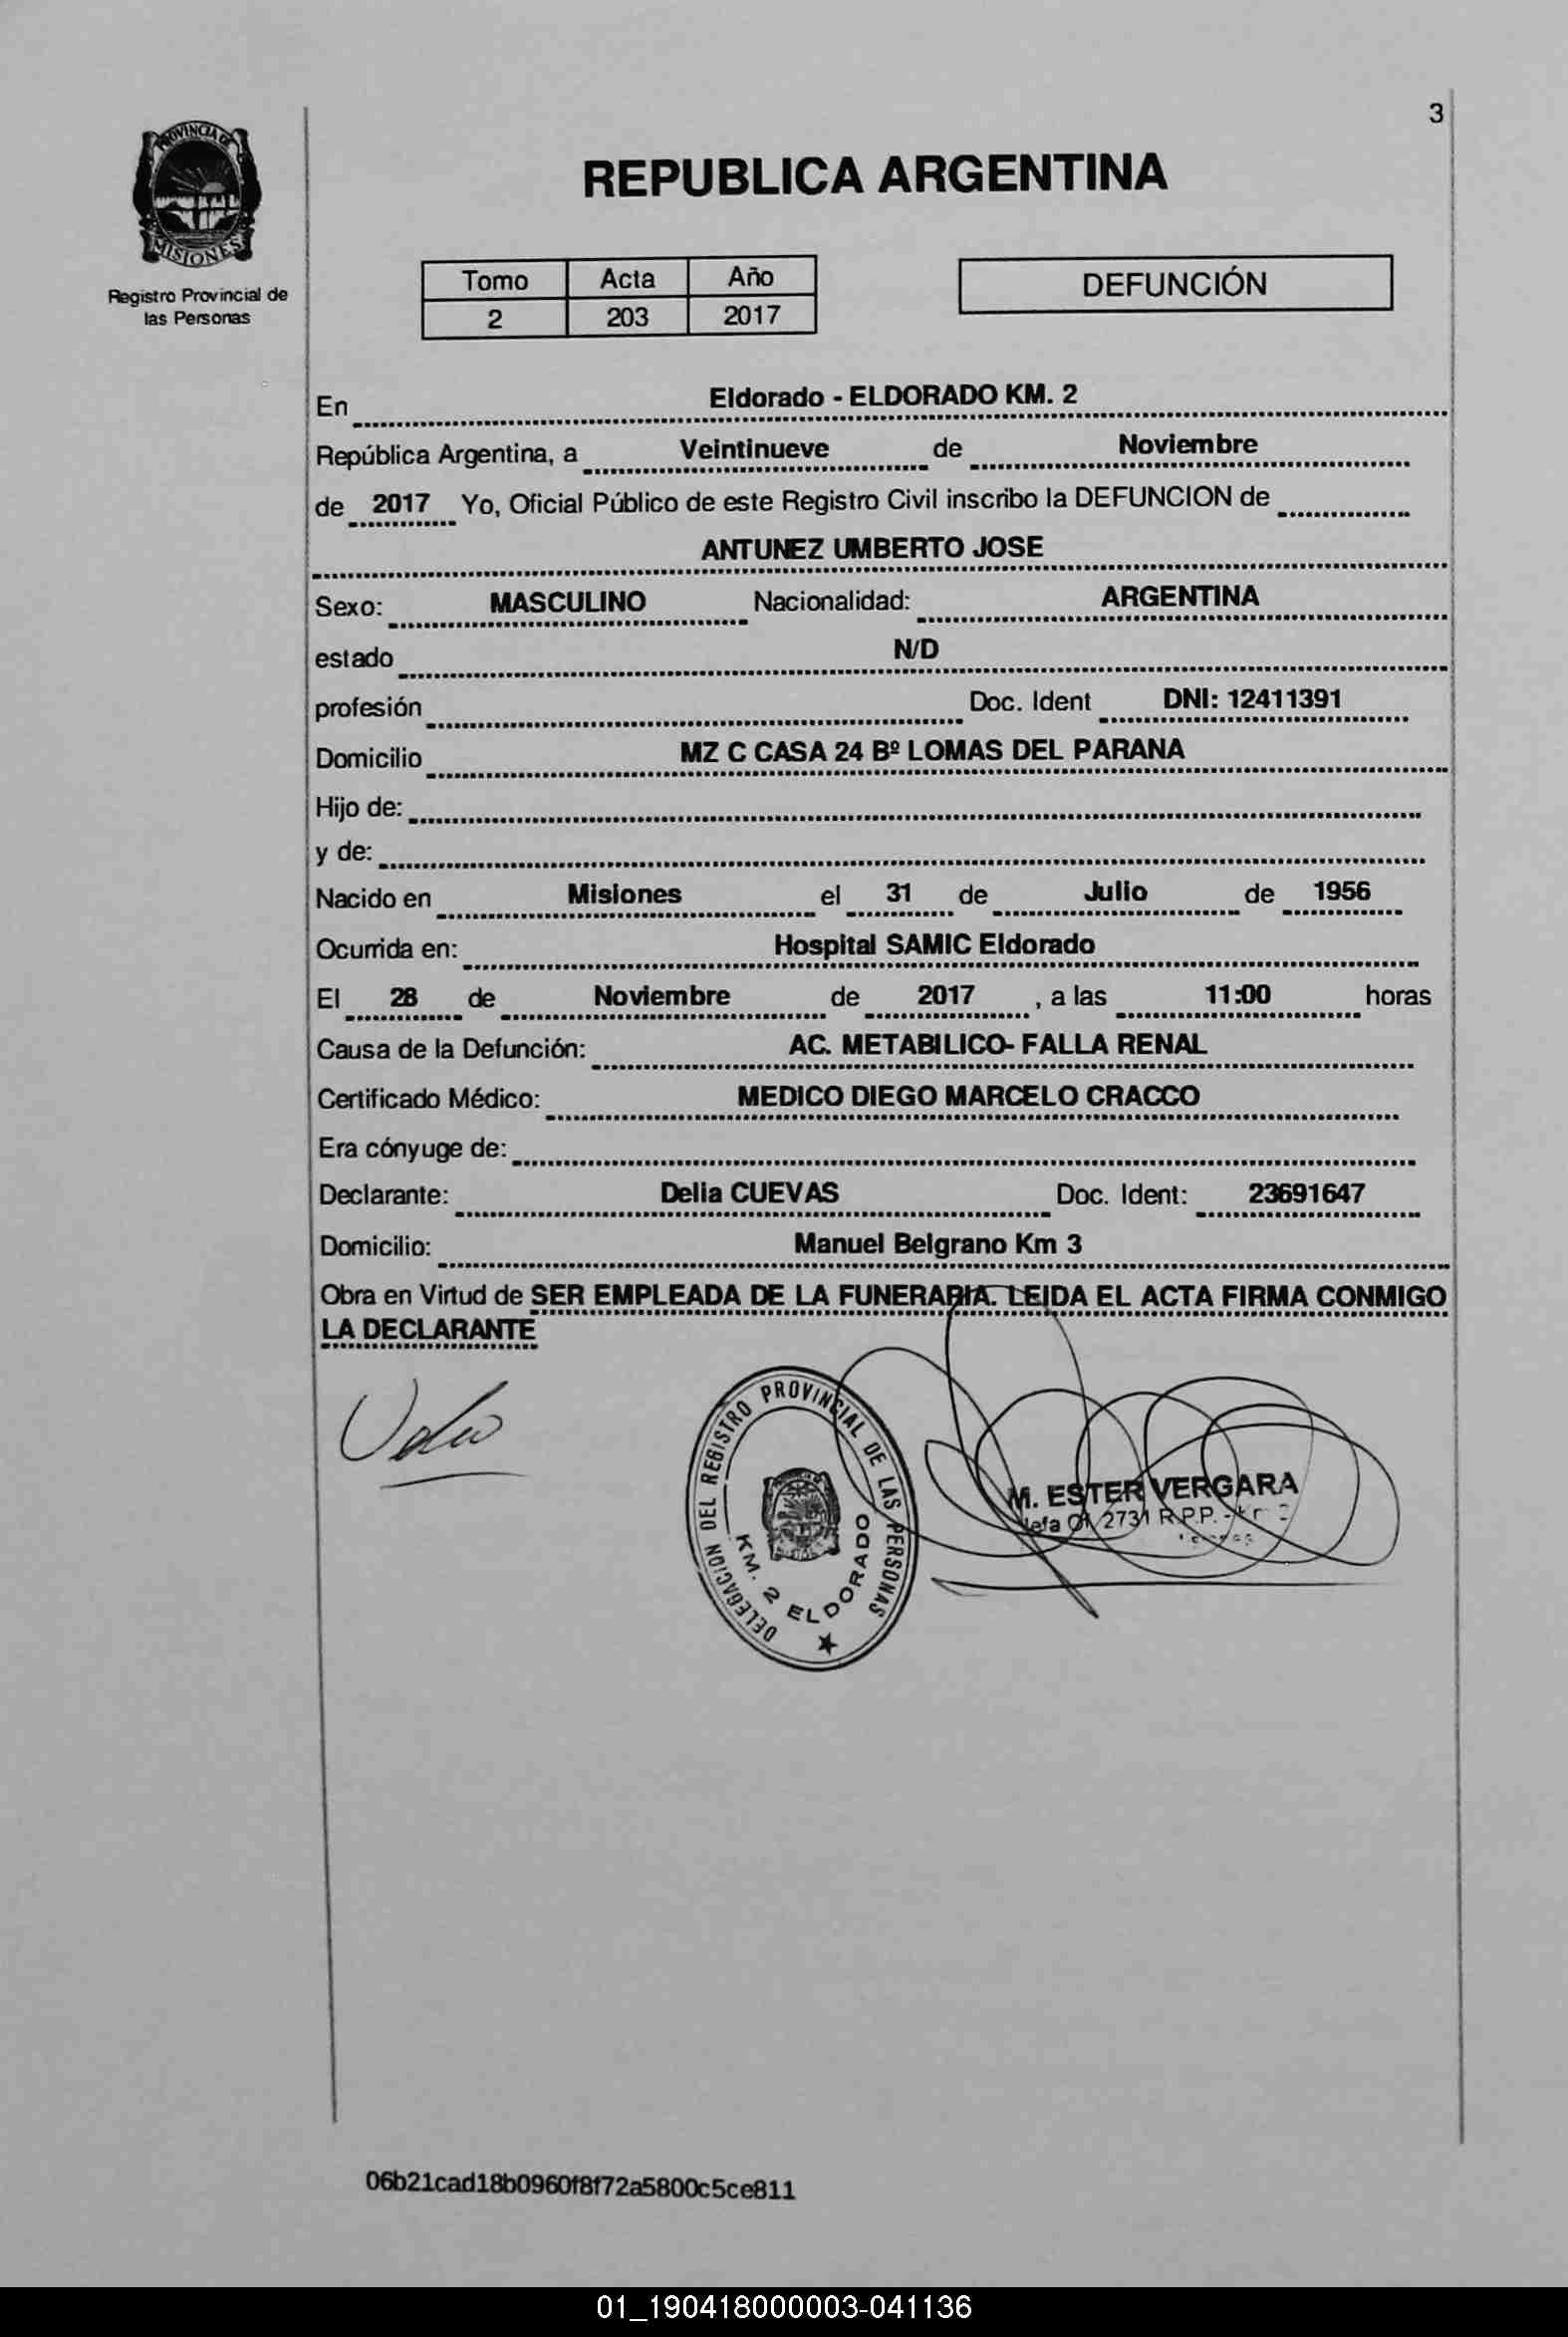 3
PROVINCIA DE
MISIONES
Registro Provincial de
las Personas
REPUBLICA ARGENTINA
Tomo Acta Año
2 203 2017
DEFUNCIÓN
En Eldorado - ELDORADO KM. 2
República Argentina, a Veintinueve de Noviembre
de 2017 Yo, Oficial Público de este Registro Civil inscribo la DEFUNCION de
ANTUNEZ UMBERTO JOSE
Sexo: MASCULINO Nacionalidad: ARGENTINA
estado N/D
profesión Doc. Ident DNI: 12411391
Domicilio MZ C CASA 24 Bº LOMAS DEL PARANA
Hijo de:
y de:
Nacido en Misiones el 31 de Julio de 1956
Ocurrida en: Hospital SAMIC Eldorado
El 28 de Noviembre de 2017 , a las 11:00 horas
Causa de la Defunción: AC. METABILICO- FALLA RENAL
Certificado Médico: MEDICO DIEGO MARCELO CRACCO
Era cónyuge de:
Declarante: Delia CUEVAS Doc. Ident: 23691647
Domicilio: Manuel Belgrano Km 3
Obra en Virtud de SER EMPLEADA DE LA FUNERARIA. LEIDA EL ACTA FIRMA CONMIGO
LA DECLARANTE
DELEGACION DEL REGISTRO PROVINCIAL DE LAS PERSONAS
KM. 2 ELDORADO
M. ESTER VERGARA
2731 R.P.P.
06b21cad18b0960f8f72a5800c5ce811
01_190418000003-041136